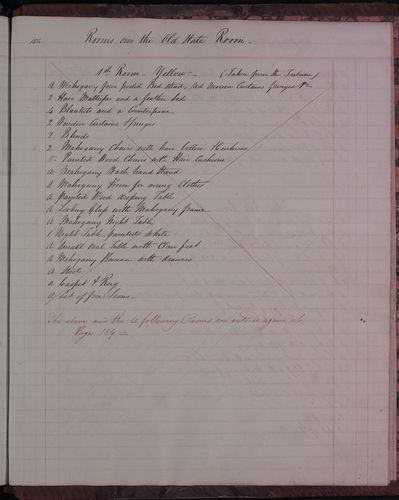 186 Rooms over the Old State Room
1st Room - Yellow - (Taken from the
A Mahogany four posted Bed stead, red Moreen Curtains fringes &c
2 Hair Mattresses and a feather bed
3 Blankets and a Counterpane
2 Window Curtains & fringes
2 Blinds
2 Mahogany Chairs with hair bottom
5 Painted Wood Chairs with Hair Cushions
A Mahogany Wash hand Stand
A Mahogany Horse for airing Clothes
A Painted Wood dressing Table
A Looking Glass with Mahogany frame
A Mahogany Night Table
1 Night Table painted White
A Small oval Table with Claw feet
A Mahogany Bureau with drawers
A Stool
A Carpet & Rug
A Set of fire Irons
The above and the following Rooms are entered again at
Page 189